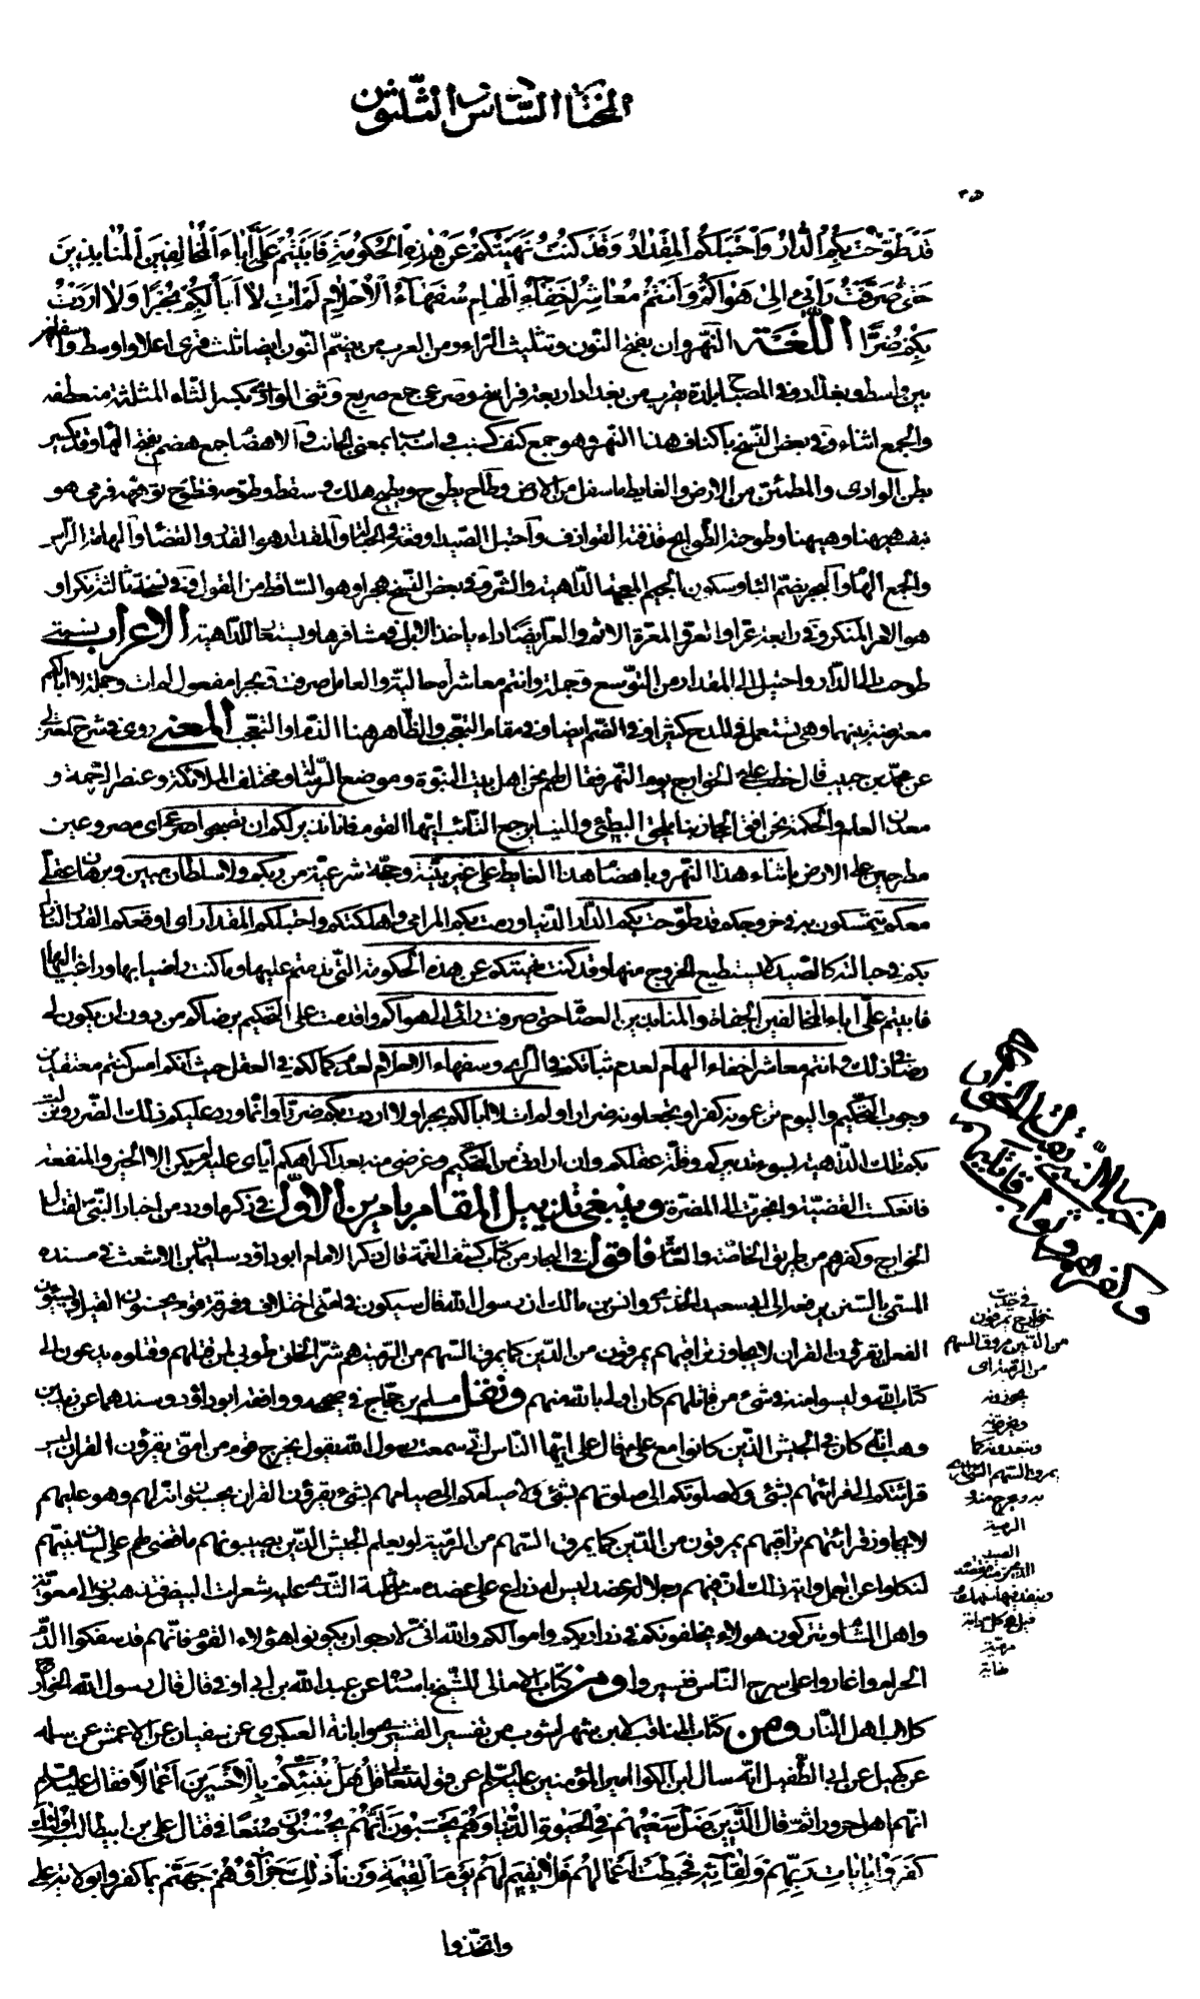 المختار السادس والثلثون
قَدْ طَوَّحَتْ بِكُمُ الدّارُ وَاحْتَبَلَكُمُ الْمِقْدارُ وَقَدْ كُنْتُ نَهَيْتُكُمْ عَنْ هٰذِهِ الْحُكُومَةِ فَاَبَيْتُمْ عَلَيَّ اِباءَ الْمُخالِفينَ الْمُنابِذينَ
حَتّى صَرَفْتُ رَأْيي اِلى هَواكُمْ وَاَنْتُمْ مَعاشِرُ اَخِفّاءُ الْهامِ سُفَهاءُ الْاَحْلامِ وَلَمْ اٰتِ لا اَبا لَكُمْ بُجْرًا وَلا اَرَدْتُ
بِكُمْ ضُرًّا اللّغة النّهروان بفتح النّون وتثليث الرّاء ومن العرب من يضمّ النّون ايضا ثلث قرى اعلا واوسط واسفل هنّ
بين واسط وبغداد وفي المصباح بلدة بقرب من بغداد اربعة فراسخ وصرعى جمع صريع وثنى الوادي بكسر الثّاء المثلثة منعطفه
والجمع اثناء وفي بعض النّسخ باكناف هذا النّهر وهو جمع كنف كسبب واسباب بمعنى الجانب والاهضام جمع هضم بفتح الهاء وقد يكسر
بطن الوادي والمطمئنّ من الارض والغايط ما سفل من الارض وطاح يطوح ويطيح هلك وسقط وطوّحه فتطوّح توّهه فرمى هو
بنفسه هيهنا وهيهنا وطوحته الطوايح قذفته القواذف واحتبل الصّيد اوقعه في الحبالة والمقدار هو القدر والقضاء والهامة الرّأس
والجمع الهام والبجر بضمّ الباء وسكون الجيم المعجمة الدّاهية والشّر وفي بعض النّسخ هجرا وهو السّاقط من القول وفي نسخة ثالثة نكرا و
هو الامر المنكر وفي رابعة عرّا والعرّ والمعرّة الاثم والعرّ ايضًا داء ياخذ الابل في مشافرها ويستعار للدّاهية الاعراب نسبة
طوحت الى الدّار واحتبل الى المقدار من التّوسع وجملة وانتم معاشر اه حالية والعامل صرفت وبجرا مفعول لم ات وجملة لا ابا لكم
معترضة بينهما وهي تستعمل في المدح كثيرا وفي الذّم ايضا وفي مقام التّعجب والظّاهر هنا الذّم او التّعجّب المعنى روى في شرح المعتزلي
عن محمّد بن حبيب قال خطب علي ع الخوارج يوم النّهر فقال لهم نحن اهل بيت النّبوة وموضع الرّسالة ومختلف الملائكة وعنصر الرّحمة و
معدن العلم والحكمة نحن افق الحجاز بنا يلحق البطيء والينا يرجع التّائب ايّها القوم فانا نذير لكم ان تصبحوا صرعى اى مصروعين
مطرحين على الارض باثناء هذا النّهر وباهضام هذا الغايط على غير بيّنة وحجّة شرعيّة من ربّكم ولا سلطان مبين وبرهان عقلي
معكم تتمسّكون به في خروجكم قد طوّحت بكم الدّار الدّنيا ورمت بكم المرامي واهلكتكم واحتبلكم المقدار اى اوقعكم القدر النّازل
بكم في حبالته كالصّيد لا يستطيع الخروج منها وقد كنت نهيتكم عن هذه الحكومة الّتي ندمتم عليها وما كنت راضيا بها وراغبا اليها
فابيتم علىّ اباء المخالفين الجفاة والمنابذين العصاة حتى صرفت رائى الى هواكم واقدمت على التّحكيم برضاكم من دون ان يكون لي
رضا في ذلك وانتم معاشر اخفاء الهام لعدم ثباتكم في الرّأي وسفهاء الاحلام لعدم كمالكم في العقل حيث انكم امس كنتم معتقدين
وجوب التّحكيم واليوم تزعمونه كفرا وتجعلونه ضرارا ولم ات لا ابا لكم بجرا ولا اردت بكم ضرّا وانّما ورد عليكم ذلك الضّرر ونزلت
بكم تلك الدّاهية بسوء تدبيركم وقلّة عقلكم وان ارادتي من التّحكيم وغرضي منه بعد اكراهكم ايّاى عليه لم يكن الا الخير والمنفعة
فانعكست القضيّة وانجرّت الى المضرّة وينبغي تذييل المقام بامرين الاوّل في ذكر ما ورد من اخبار النّبي لقتال
الخوارج وكفرهم من طريق الخاصّة والعامّة فاقول في البحار من كتاب كشف الغمّة قال ذكر الامام ابو داود سليمان بن الاشعث في مسنده
المسمّى بالسّنن يرفعه الى ابي سعيد الخدري وانس بن مالك ان رسول الله قال سيكون في امّتي اختلاف وفرقة قوم يحسنون القيل ويسيئون
الفعل يقرؤن القران لا يجاوز تراقيهم يمرقون من الدّين كما يمرق السّهم من الرّميّة هم شرّ الخلق طوبى لمن قتلهم وقتلوه يدعون الى
كتاب الله وليسوا منه في شيء من قاتلهم كان اولى بالله منهم ونقل مسلم بن حجّاج في صحيحه ووافقه ابو داود وسندهما عن زيد بن
وهب انّه كان في الجيش الّذين كانوا مع علي ع قال علي ايّها النّاس انّي سمعت رسول الله يقول يخرج قوم من امّتي يقرؤن القران ليس
قرائتكم الى قرائتهم بشيء ولا صلوتكم الى صلوتهم بشيء ولا صيامكم الى صيامهم بشيء يقرؤن القران يحسبون انّه لهم وهو عليهم
لا يجاوز قرائتهم تراقيهم يمرقون من الدّين كما يمرق السّهم من الرّميّة لو يعلم الجيش الّذين يصيبونهم ما قضى لهم على لسان نبيّهم
لنكلوا عن العمل واية ذلك انّ فيهم رجلا له عضد ليس له ذراع على عضده مثل حلمة الثّدي عليه شعرات البيض فتذهبون الى معوية
واهل الشّام وتتركون هؤلاء يخلفونكم في ذراريكم واموالكم والله انّي لارجو ان يكونوا هؤلاء القوم فانّهم قد سفكوا الدّم
الحرام واغاروا على سرح النّاس فسيروا ومن كتاب الامالي للشّيخ باسناده عن عبد الله بن ابي اوفى قال قال رسول الله الخوارج
كلاب اهل النّار ومن كتاب المناقب لابن شهر اشوب من تفسير القشيري وابانة العكبري عن سفيان عن الاعمش عن سلمة
عن كهيل عن ابي الطّفيل انّه سال ابن الكوا امير المؤمنين عليه السّلم عن قوله تعالى قل هَلْ نُنَبِّئُكُمْ بِالْاَخْسَرينَ اَعْمالًا فقال عليه السّلم
انّهم اهل حروراء ثم قال الَّذينَ ضَلَّ سَعْيُهُمْ فِي الْحَيوةِ الدُّنْيا وَهُمْ يَحْسَبُونَ اَنَّهُمْ يُحْسِنُونَ صُنْعًا في قتال علي بن ابيطالب اُولٰئِكَ الَّذينَ
كَفَرُوا بِاٰياتِ رَبِّهِمْ وَلِقائِهِ فَحَبِطَتْ اَعْمالُهُمْ فَلا نُقيمُ لَهُمْ يَوْمَ الْقِيٰمَةِ وَزْنًا ذٰلِكَ جَزاؤُهُمْ جَهَنَّمُ بِما كَفَرُوا بولاية علي
واتّخذوا
اخبار النّبي بقتال الخوارج
وكفرهم وثواب قاتليهم
في حديث
خوارج يمرقون
من الدّين مروق السّهم
من الرّمية اى
يجوزونه
ويخرقونه
ويتعدونه كما
يمرق السّهم
ويخرج منه
الرمية
الصيد
كل دابة
مرميّة